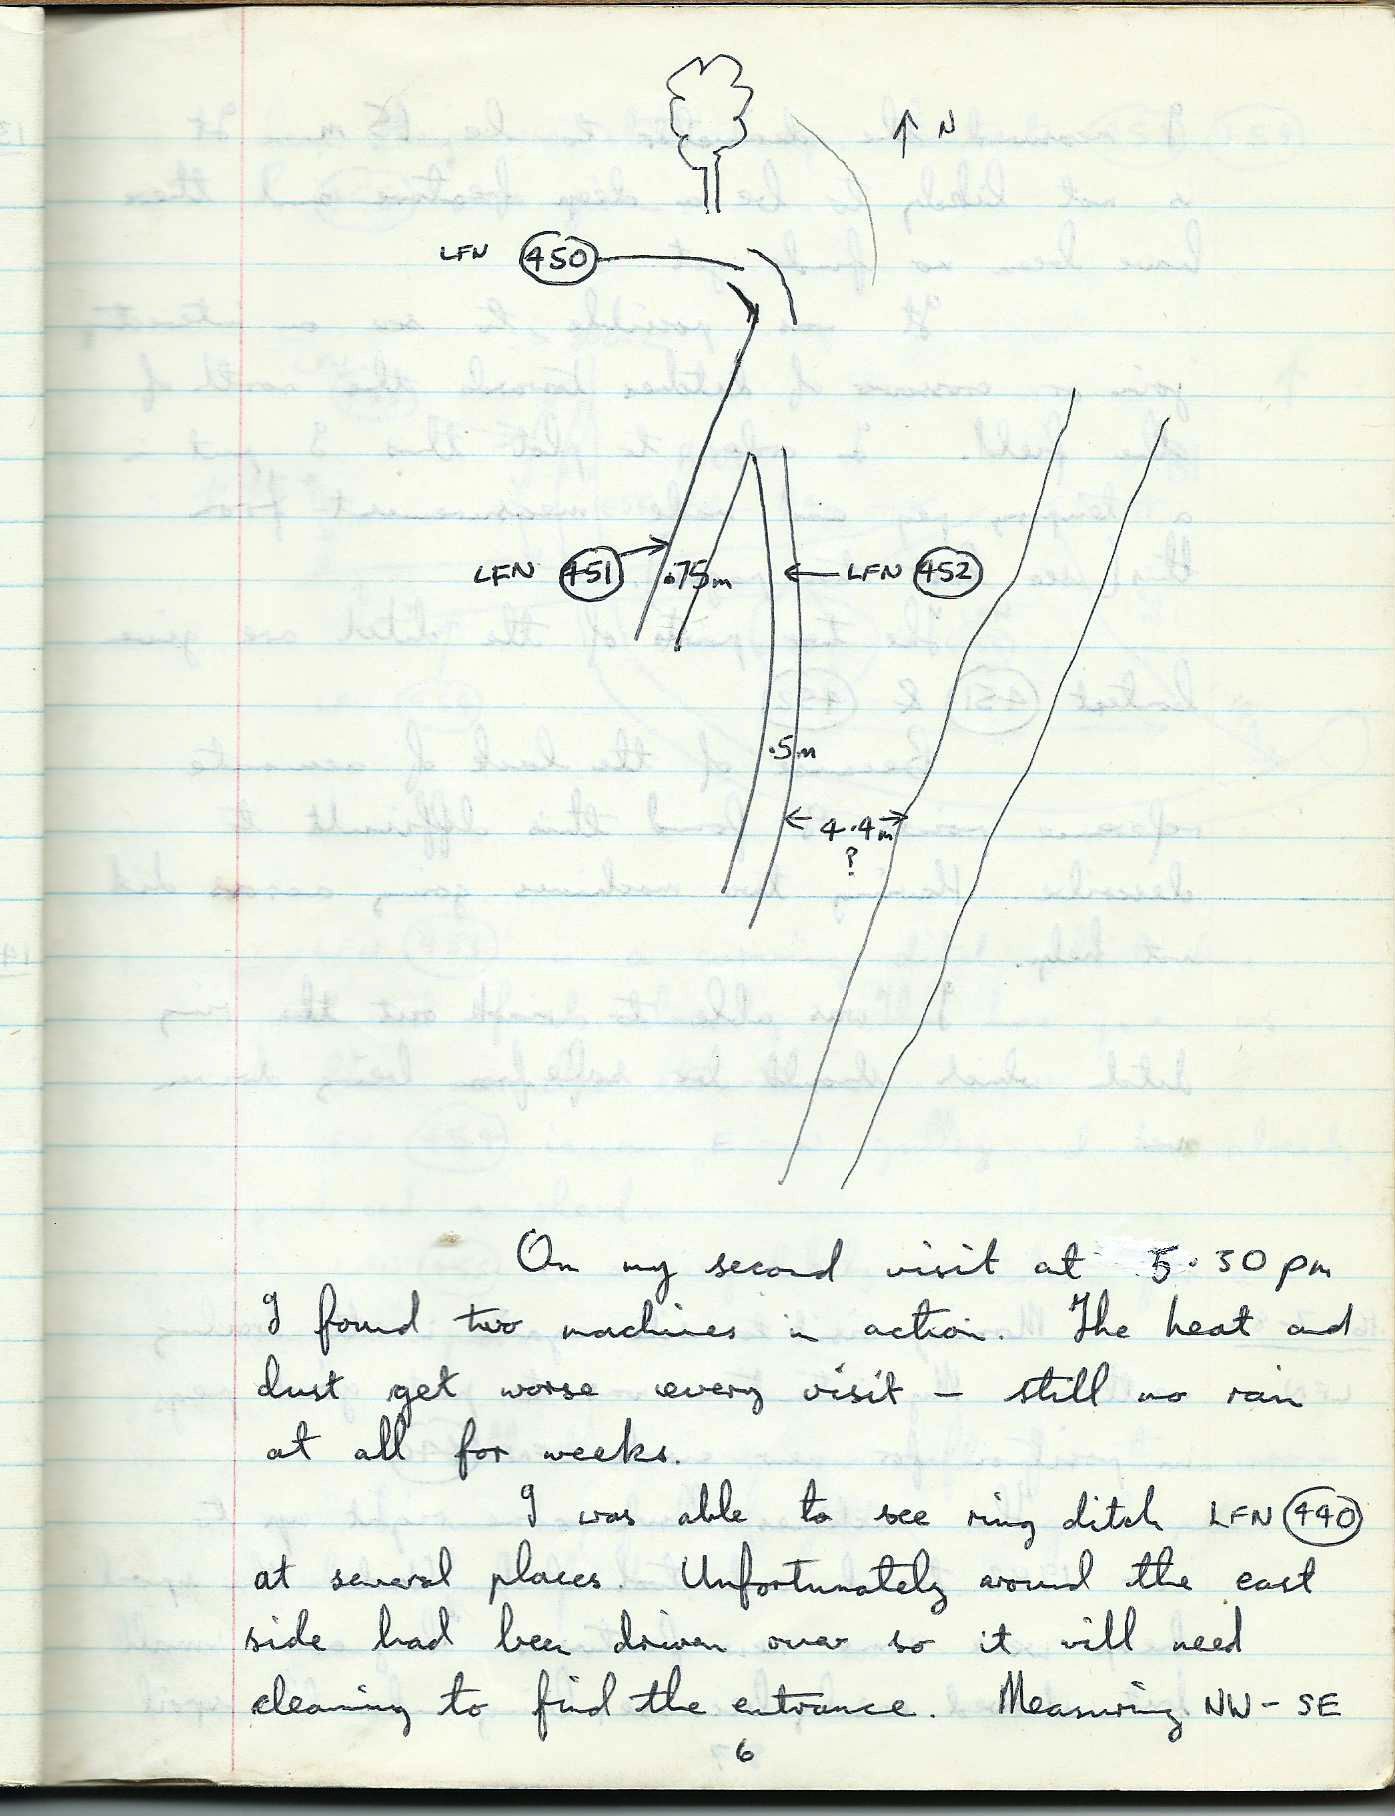 ↑ N
LFN 450
LFN 451 .75m LFN 452
.5m
4.4m
?
On my second visit at 5.30 pm
I found two machines in action. The heat and
dust get worse every visit – still no rain
at all for weeks.
I was able to see ring ditch LFN 440
at several places. Unfortunately around the east
side had been driven over so it will need
cleaning to find the entrance. Measuring NW – SE
6